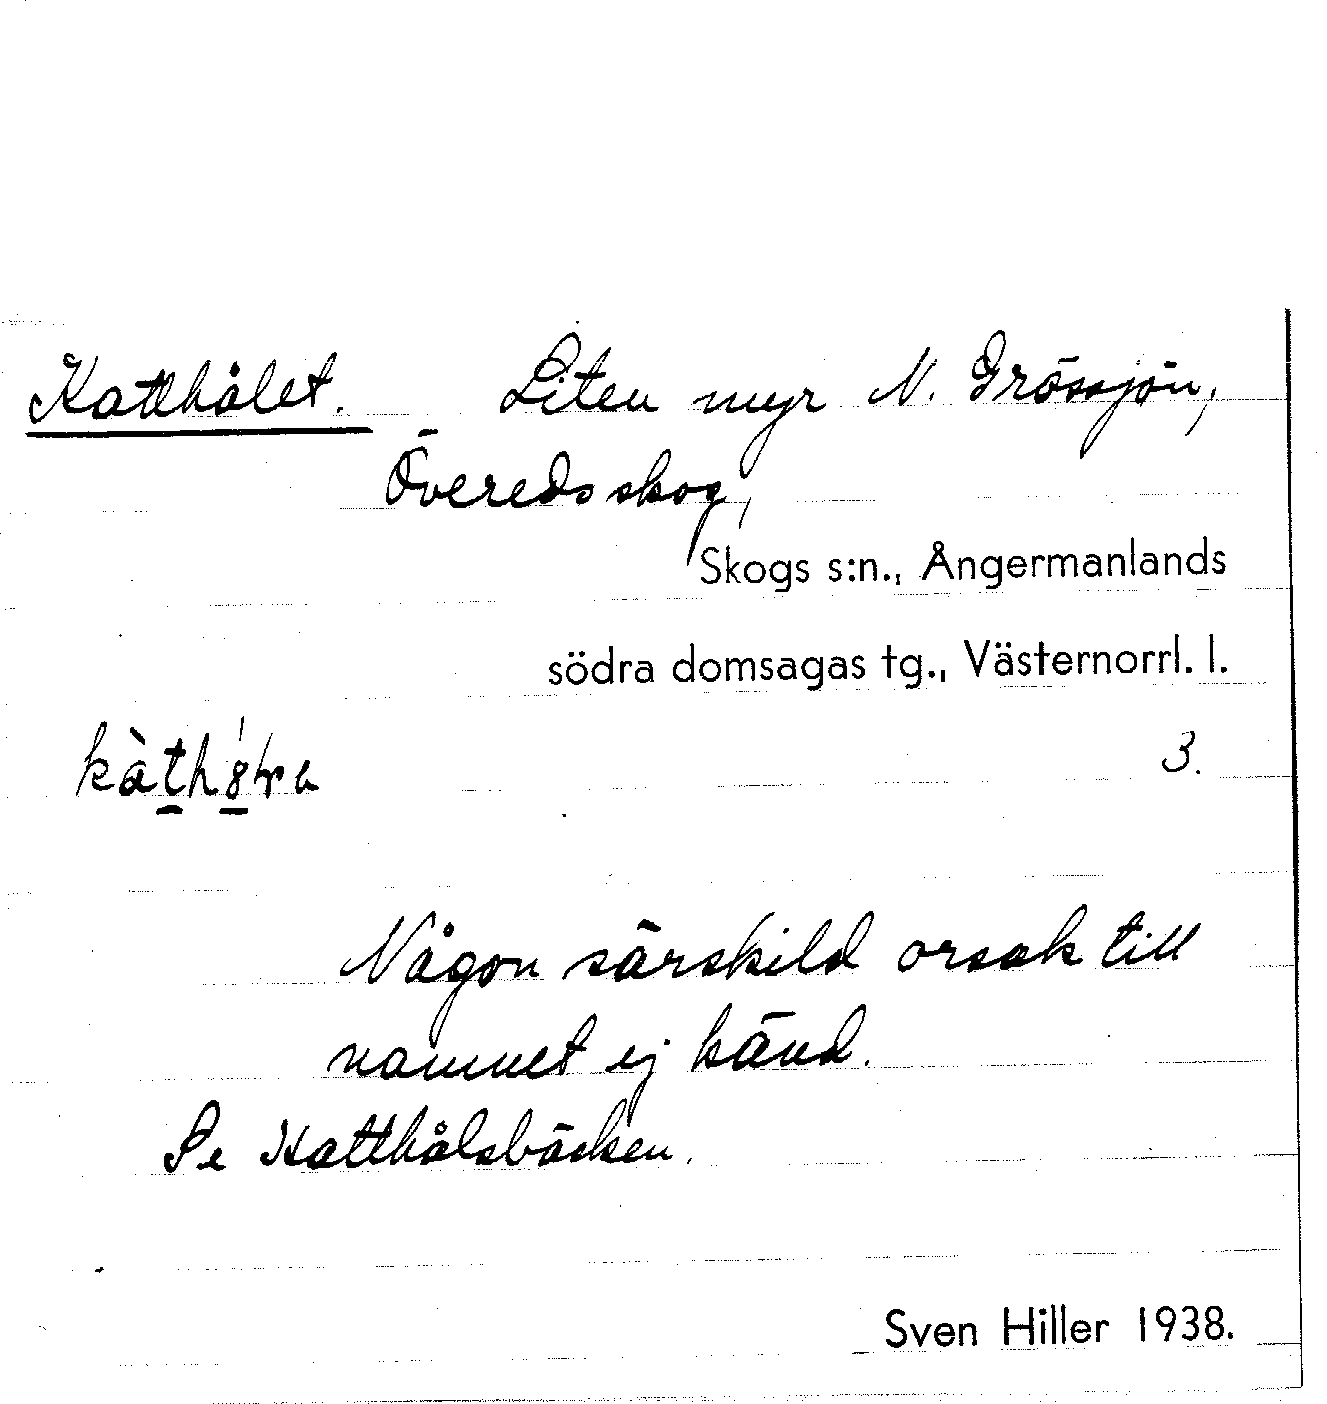 Katthålet. Liten myr N. Grössjön,
Överedsskog,
Skogs s:n., Ångermanlands
södra domsagas tg., Västernorrl. l.
3.
Någon särskild orsak till
namnet ej känd.
Se Katthålsbäcken.
Sven Hiller 1938.